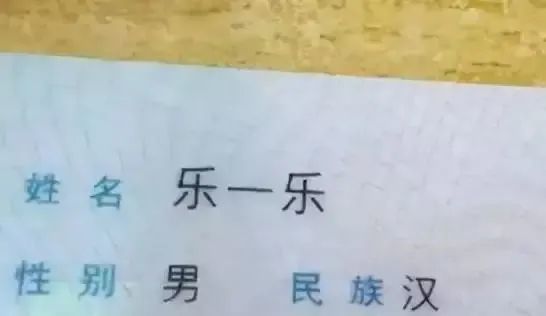 姓名 乐一乐
性别 男 民族 汉